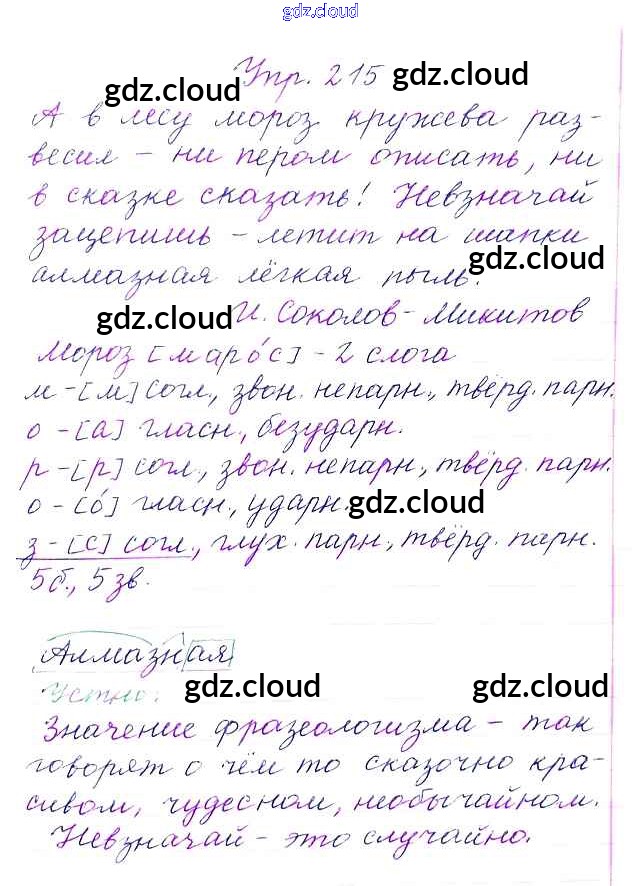 gdz.cloud
Упр. 215
gdz.cloud
gdz.cloud
А в лесу мороз кружева раз-
весил – ни пером описать, ни
в сказке сказать! Невзначай
зацепишь – летит на шапки
алмазная лёгкая пыль.
gdz.cloud
gdz.cloud
И. Соколов-Микитов
Мороз [марóс] – 2 слога
м – [м] согл., звон. непарн., твёрд. парн.
о – [а] гласн., безударн.
р – [р] согл., звон. непарн., твёрд. парн.
о – [ó] гласн., ударн.
gdz.cloud
з – [с] согл., глух. парн., твёрд. парн.
5б., 5 зв.
Алмазная
Устно:
gdz.cloud
gdz.cloud
Значение фразеологизма – так
говорят о чём то сказочно кра-
сивом, чудесном, необычайном.
Невзначай – это случайно.